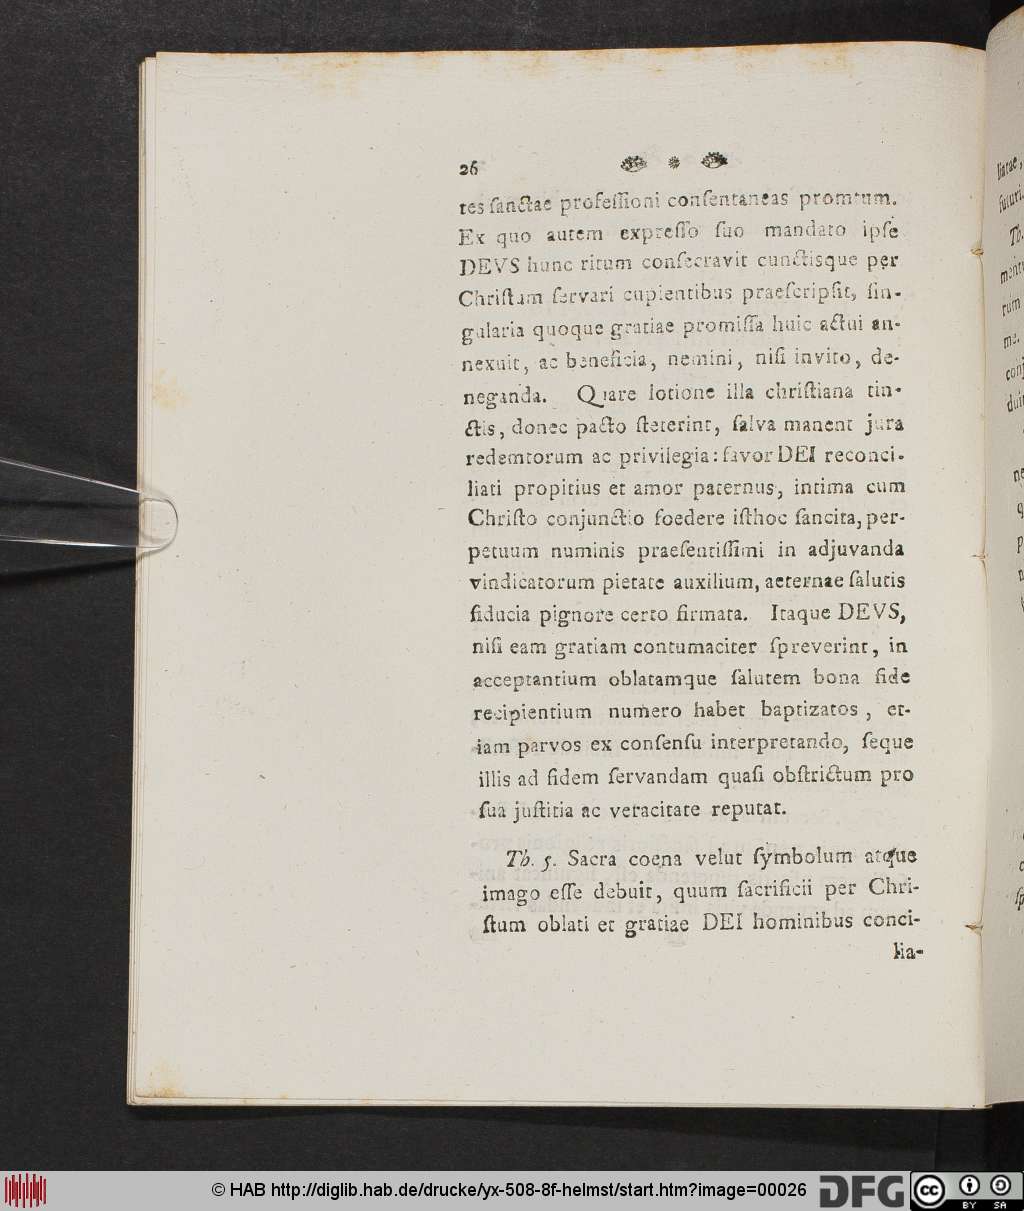 26
tes ſanctae profeſſioni conſentaneas promtum.
Ex quo autem expreſſo ſuo mandato ipſe
DEVS hunc ritum conſecravit cunctisque per
Chriſtum ſervari cupientibus praeſcripſit, ſin-
gularia quoque gratiae promiſſa huic actui an-
nexuit, ac beneficia, nemini, niſi invito, de-
neganda. Quare lotione illa chriſtiana tin-
ctis, donec pacto ſteterint, ſalva manent jura
redemtorum ac privilegia: favor DEI reconci-
liati propitius et amor paternus, intima cum
Chriſto conjunctio foedere iſthoc ſancita, per-
petuum numinis praeſentiſſimi in adjuvanda
vindicatorum pietate auxilium, aeternae ſalutis
fiducia pignore certo firmata. Itaque DEVS,
niſi eam gratiam contumaciter ſpreverint, in
acceptantium oblatamque ſalutem bona fide
recipientium numero habet baptizatos, et-
iam parvos ex conſenſu interpretando, ſeque
illis ad fidem ſervandam quaſi obſtrictum pro
ſua juſtitia ac veracitate reputat.
Th. 5. Sacra coena velut ſymbolum atque
imago eſſe debuit, quum ſacrificii per Chri-
ſtum oblati et gratiae DEI hominibus conci-
lia-
© HAB http://diglib.hab.de/drucke/yx-508-8f-helmst/start.htm?image=00026
DFG
cc BY SA